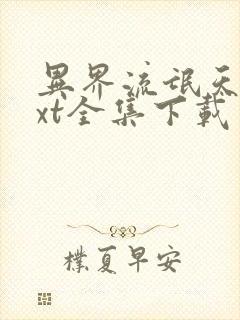 異界流氓天
xt全集下載
樸夏早安